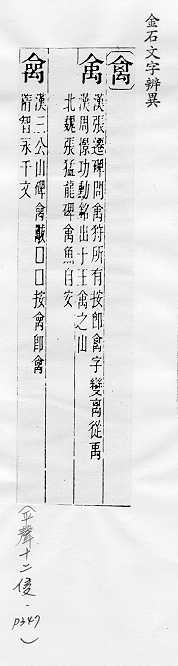 金石文字辨異
禽
漢張遷碑問禽狩所有按即禽字變离從禹
禽
漢周憬功勳銘出于王禽之山
北魏張猛龍碑禽魚自安
禽
漢三公山碑禽獸囗囗按禽即禽
隋智永千文
(平聲十二侵.P347)